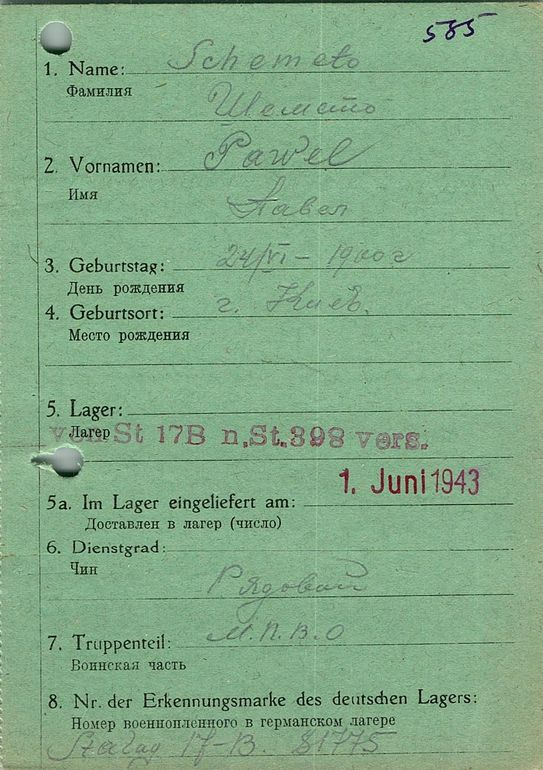 585
1. Name: Schemeto
Фамилия
Шемето
2. Vornamen: Pawel
Имя
Павел
3. Geburtstag: 24/VI – 1900 г
День рождения
4. Geburtsort: г. Киев.
Место рождения
5. Lager:
Лагер
von St 17B n.St.398 vers.
1. Juni 1943
5a. Im Lager eingeliefert am:
Доставлен в лагер (число)
6. Dienstgrad:
Чин
Рядовой
7. Truppenteil: М.П.В.О
Воинская часть
8. Nr. der Erkennungsmarke des deutschen Lagers:
Номер военнопленного в германском лагере
Stalag 17-B. 81775